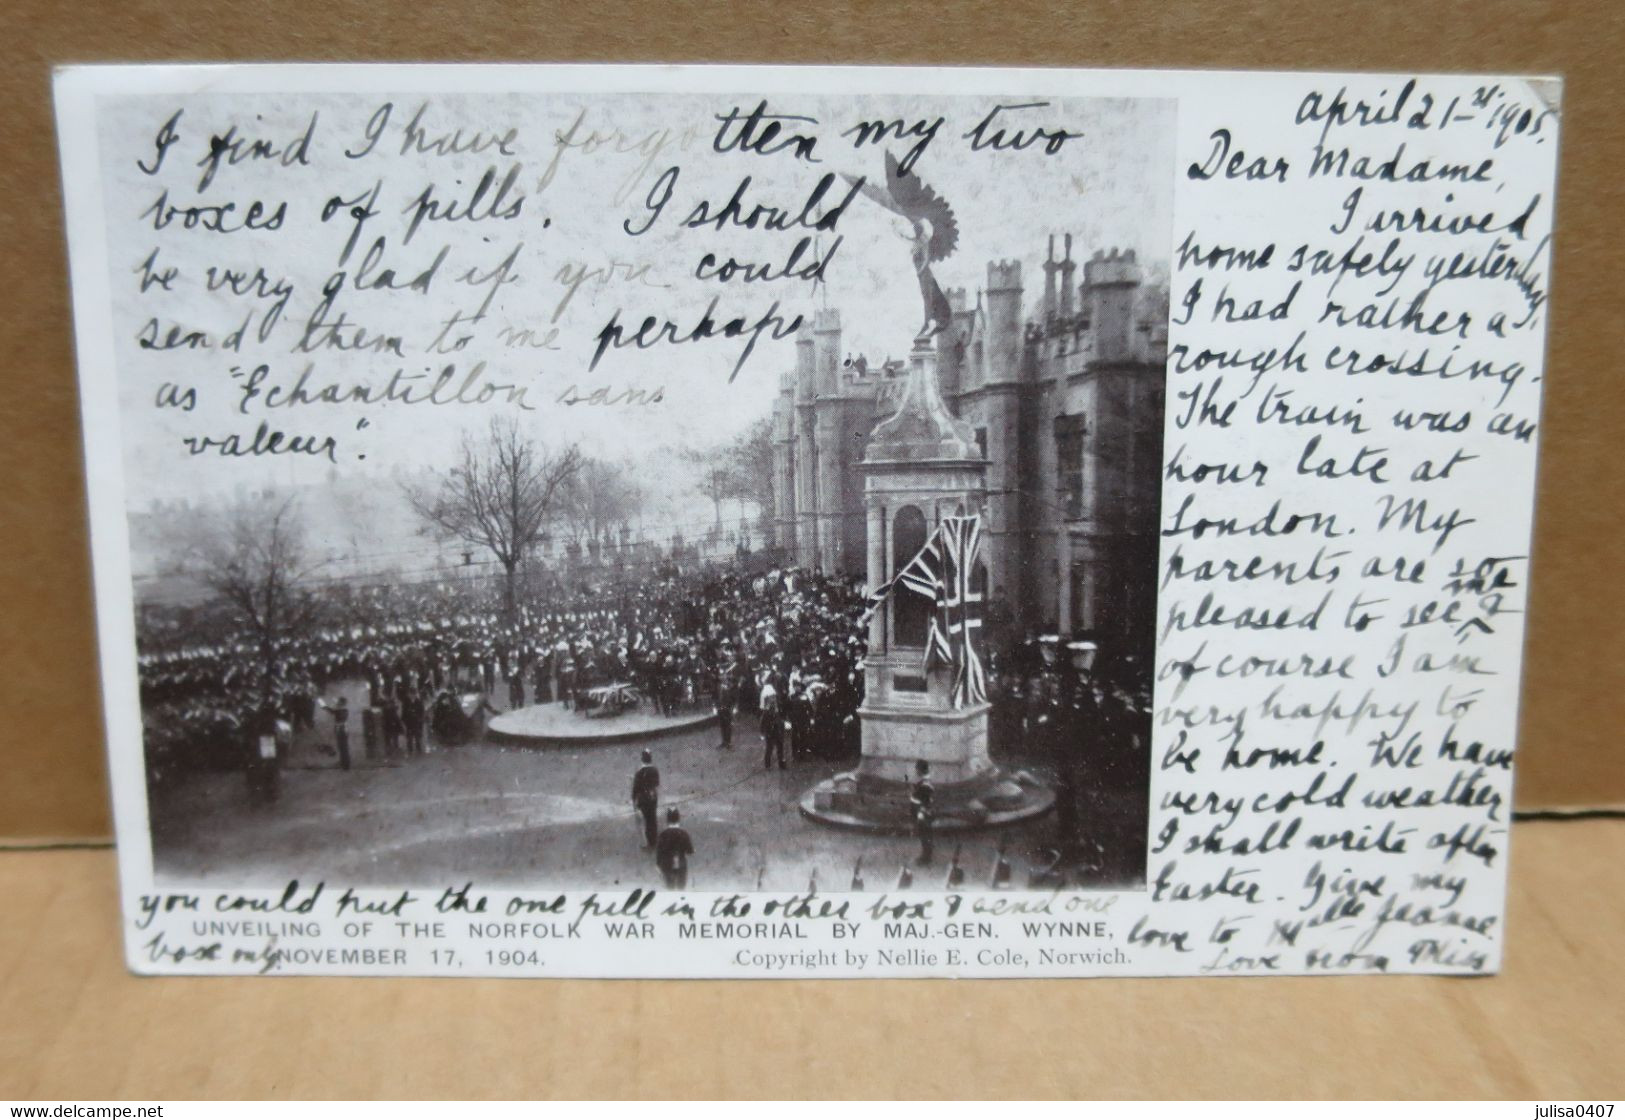 April 21st 1905.
Dear Madame,
I arrived
home safely yesterday.
I had rather a
rough crossing.
The train was an
hour late at
London. My
parents are so
pleased to see me &
of course I am
very happy to
be home. We have
very cold weather
I shall write after
Easter. Give my
love to Mlle Jeanne.
Love from Miss
I find I have forgotten my two
boxes of pills. I should
be very glad if you could
send them to me perhaps
as "Echantillon sans
valeur".
you could put the one pill in the other box & send one
box only.
UNVEILING OF THE NORFOLK WAR MEMORIAL BY MAJ.-GEN. WYNNE,
NOVEMBER 17, 1904.
Copyright by Nellie E. Cole, Norwich.
julisa0407